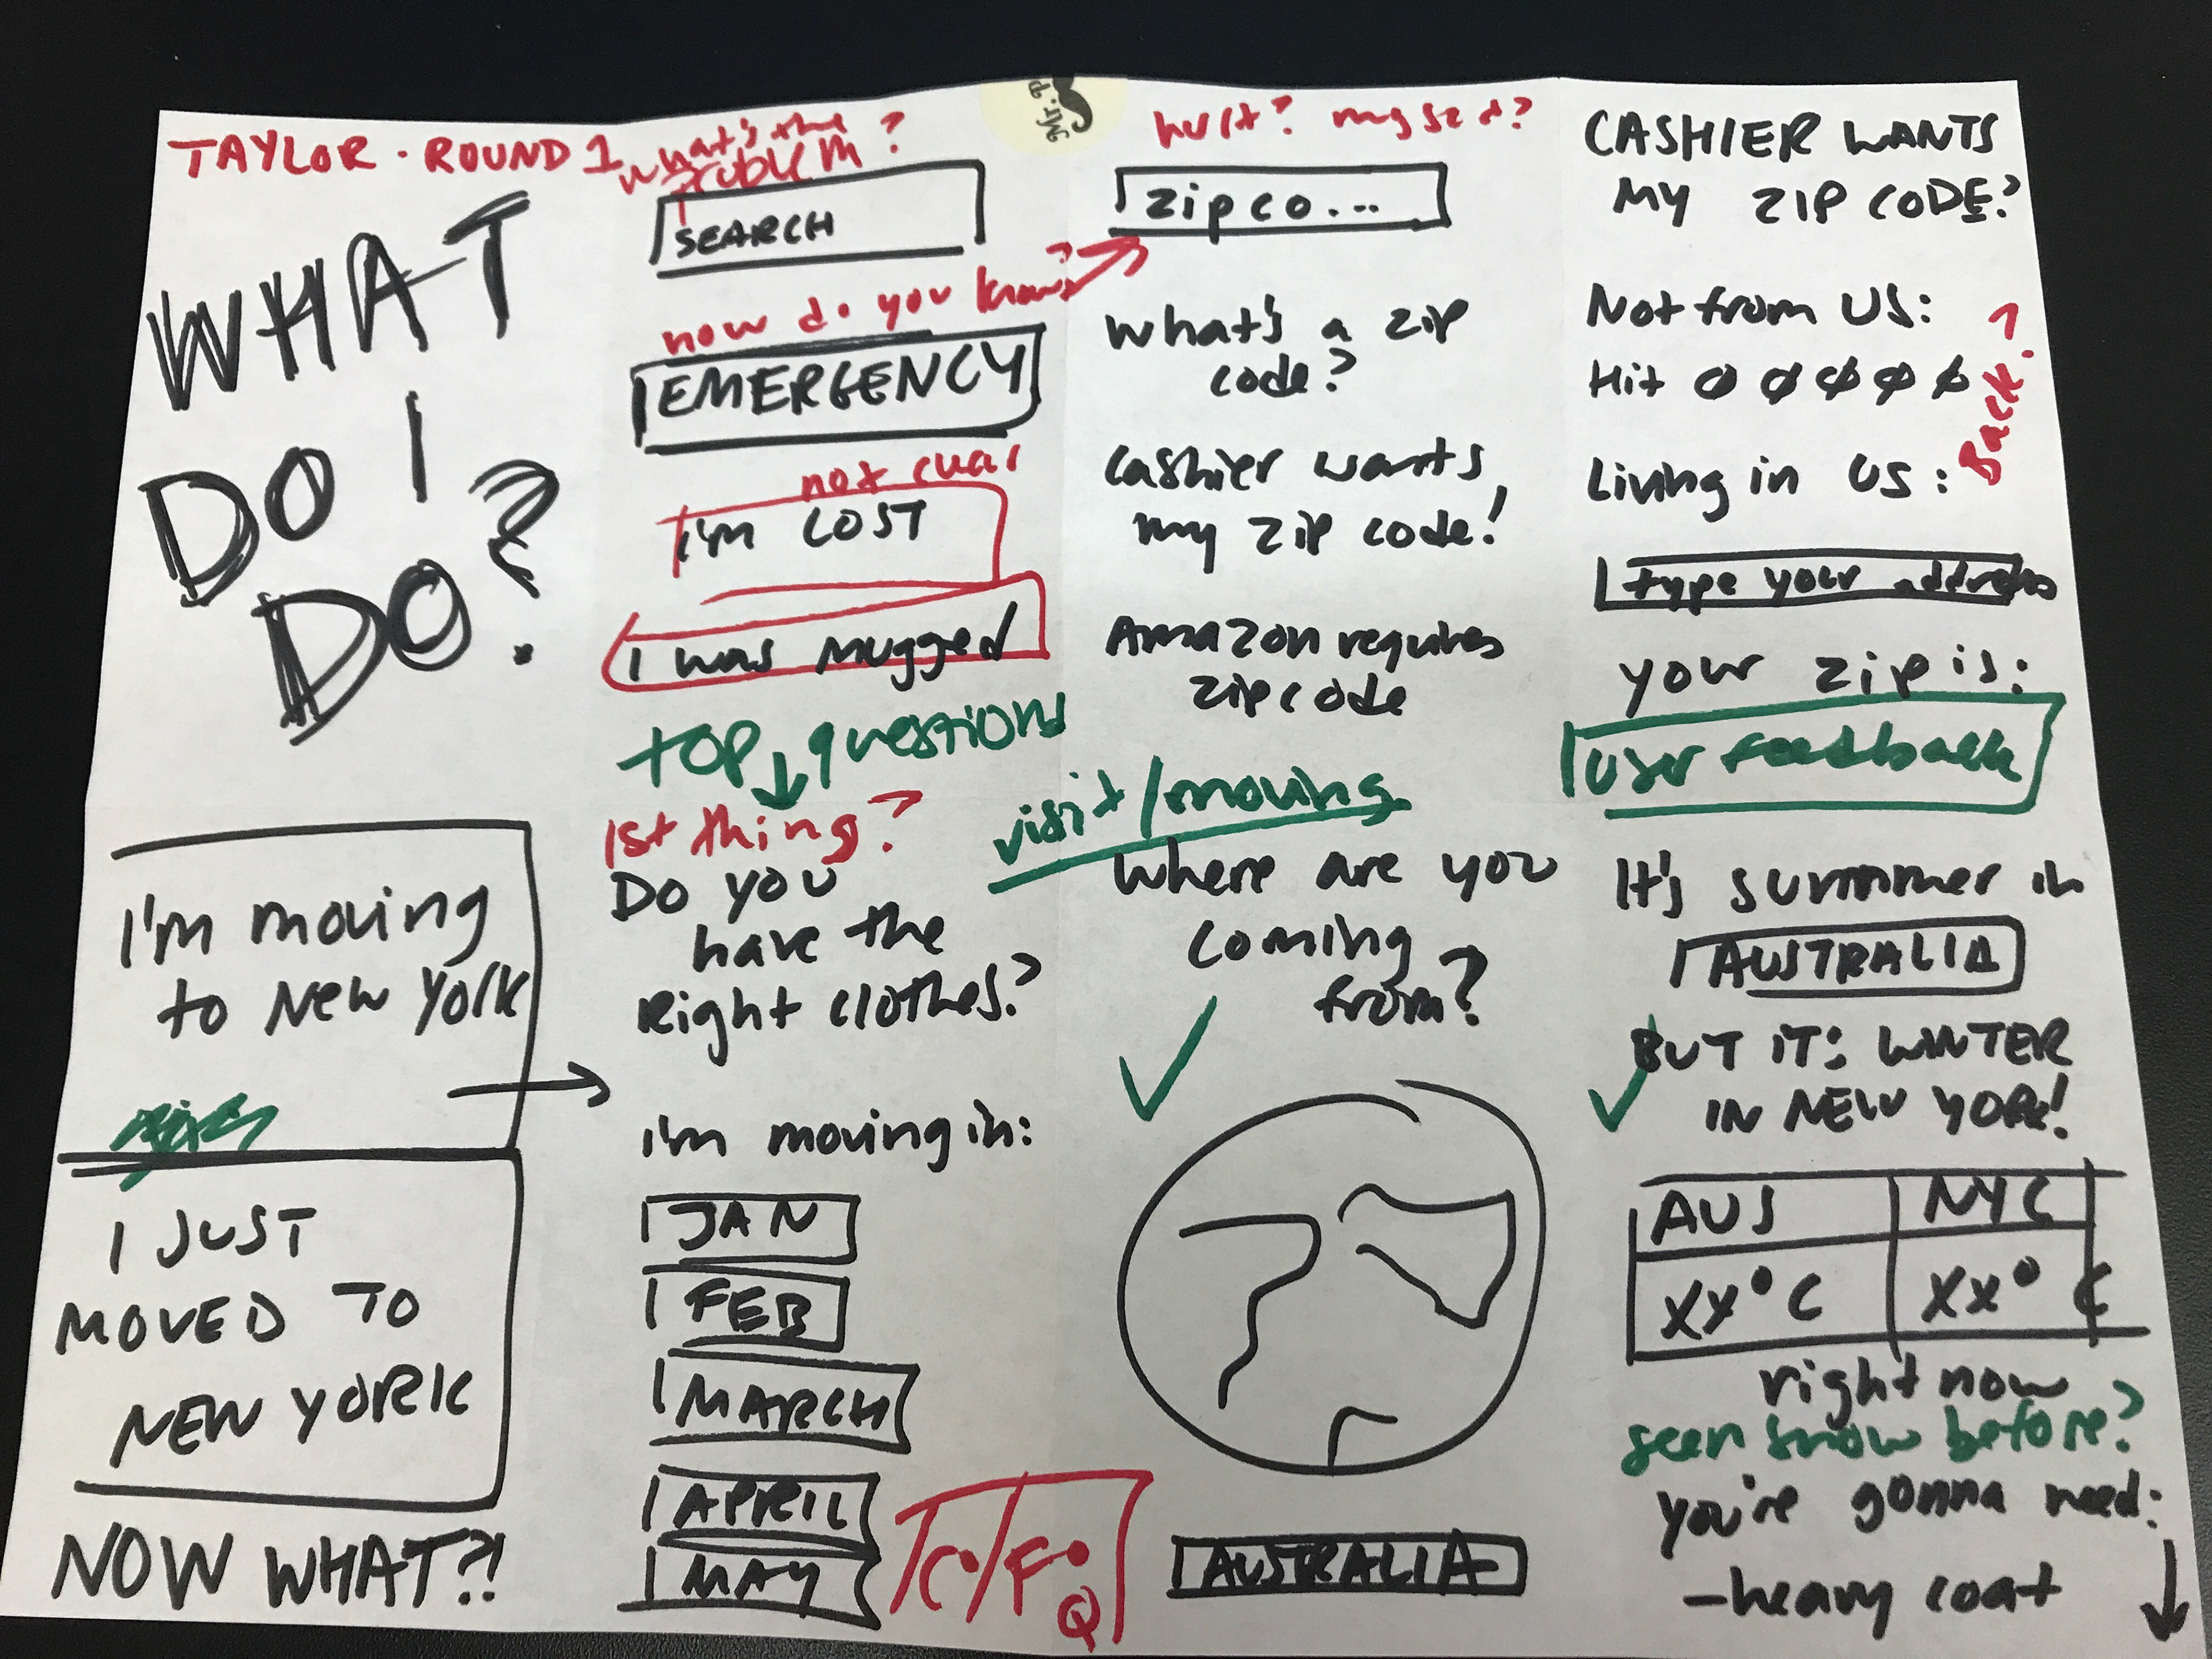 TAYLOR · ROUND 1
WHAT
DO I
DO?
what's the
problem?
SEARCH
how do you know?
EMERGENCY
not clear
I'm LOST
I was mugged
TOP questions
hurt? 
zip co...
What's a zip
code?
Cashier wants
my zip code!
Amazon requires
zip code
CASHIER WANTS
MY ZIP CODE?
Not from US:
Hit 0 0 0 0 0
Back?
Living in US:
type your address
your zip is:
user feedback
I'm moving
to New York
I JUST
MOVED TO
NEW YORK
NOW WHAT?!
1st thing?
Do you
have the
Right clothes?
I'm moving in:
JAN
FEB
MARCH
APRIL
MAY
C°/F°
Q
visit/moving
Where are you
coming
from?
AUSTRALIA
It's summer in
AUSTRALIA
BUT IT: WINTER
IN NEW YORK!
AUS NYC
XX°C XX° C
right now
seen snow before?
you're gonna need:
-heavy coat